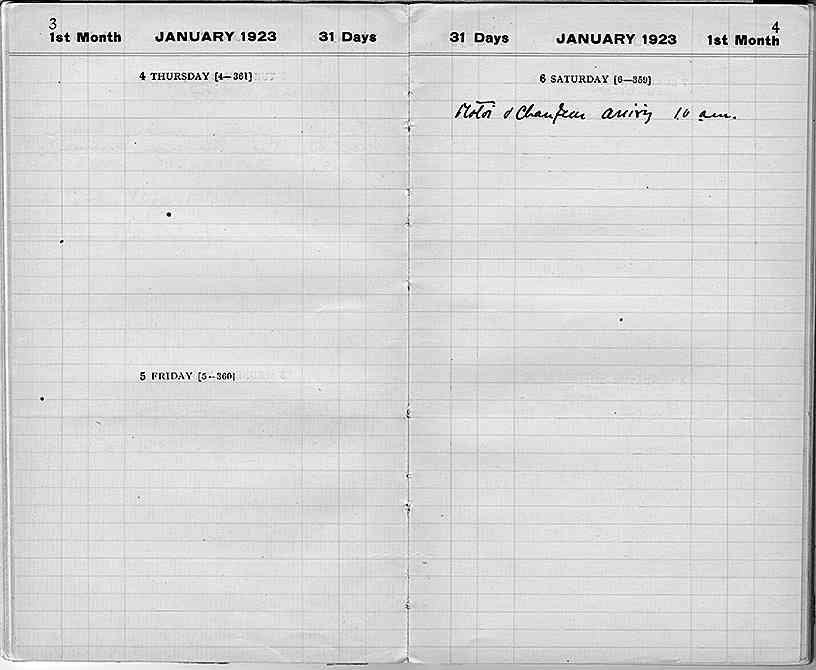 3
1st Month JANUARY 1923 31 Days
4 THURSDAY [4—361]
5 FRIDAY [5—360]
4
31 Days JANUARY 1923 1st Month
6 SATURDAY [6—359]
Motor & Chauffeur arriving 10 am.